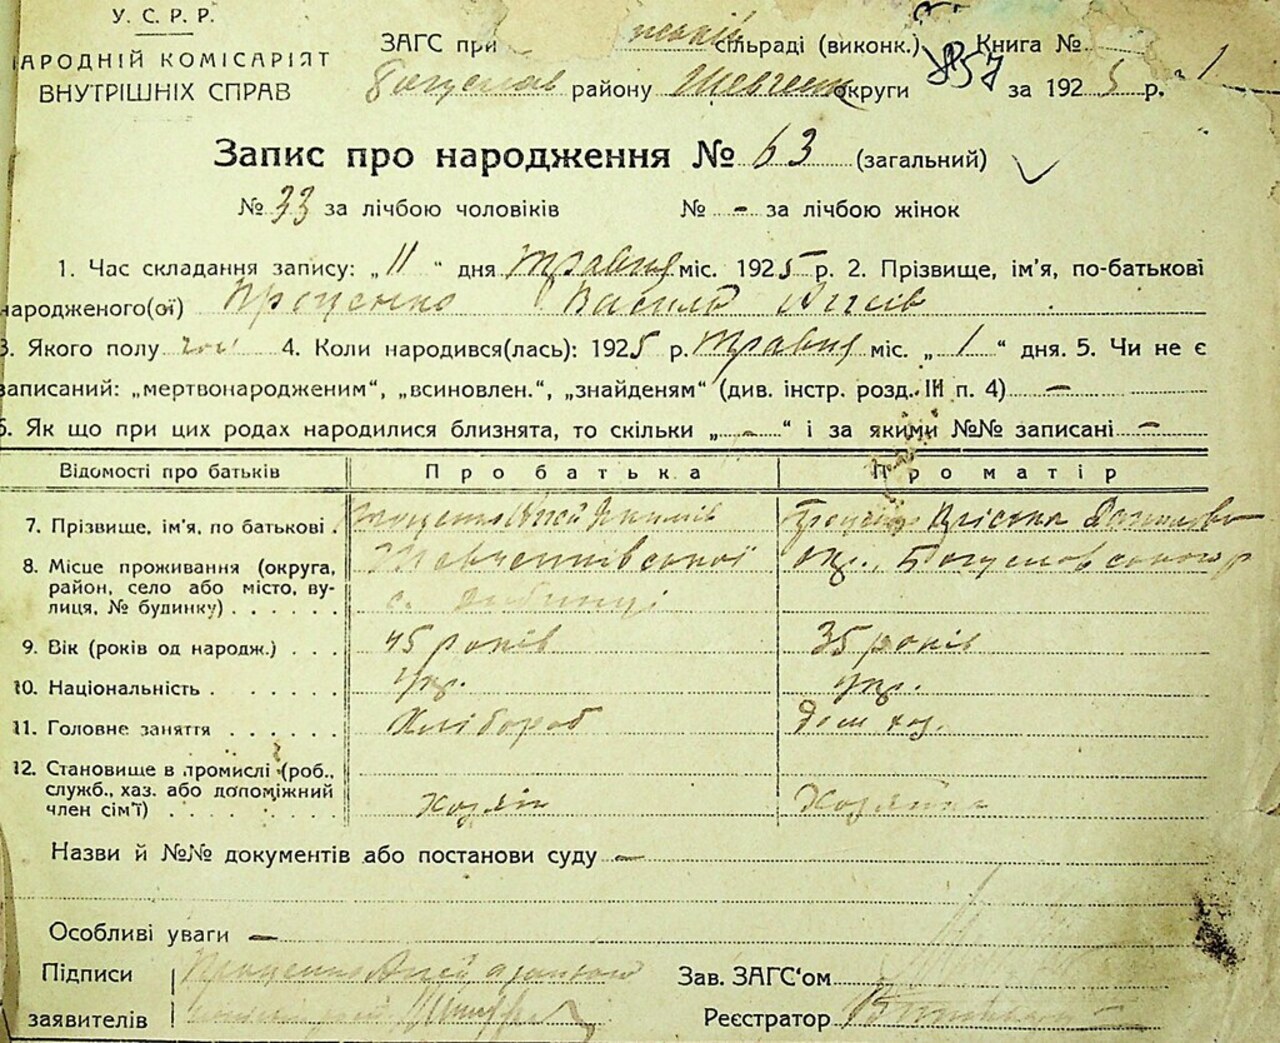 У. С. Р. Р.
НАРОДНІЙ КОМІСАРІЯТ
ВНУТРІШНІХ СПРАВ
ЗАГС при сільраді (виконк.) Книга №
Богуслав району Шевченк округи за 1925 р.
Запис про народження № 63 (загальний)
№ 33 за лічбою чоловіків № - за лічбою жінок
1. Час складання запису: „ 11 " дня травня міс. 1925 р. 2. Прізвище, ім'я, по-батькові
народженого(ої) Проценко Василь
3. Якого полу чол 4. Коли народився(лась): 1925 р. травня міс. „ 1 " дня. 5. Чи не є
записаний: „мертвонародженим", „всиновлен.", „знайденям" (див. інстр. розд. III п. 4) —
6. Як що при цих родах народилися близнята, то скільки „ - " і за якими №№ записані —
Відомості про батьків Про батька Про матір
7. Прізвище, ім'я, по батькові . Проценко
8. Місце проживання (округа, Шевченківської окр., Богуславського р
район, село або місто, ву- с. Дибинці
лиця, № будинку) . . . . . .
9. Вік (років од народж.) . . . 45 років 35 років
10. Національність . . . . . . укр. укр.
11. Головне заняття . . . . . . Хлібороб Дом. хоз.
12. Становище в промислі (роб.,
служб., хаз. або допоміжний Хозяін Хозяйка
член сім'ї) . . . . . . . .
Назви й №№ документів або постанови суду —
Особливі уваги —
Підписи Проценко Зав. ЗАГС'ом
заявителів Реєстратор